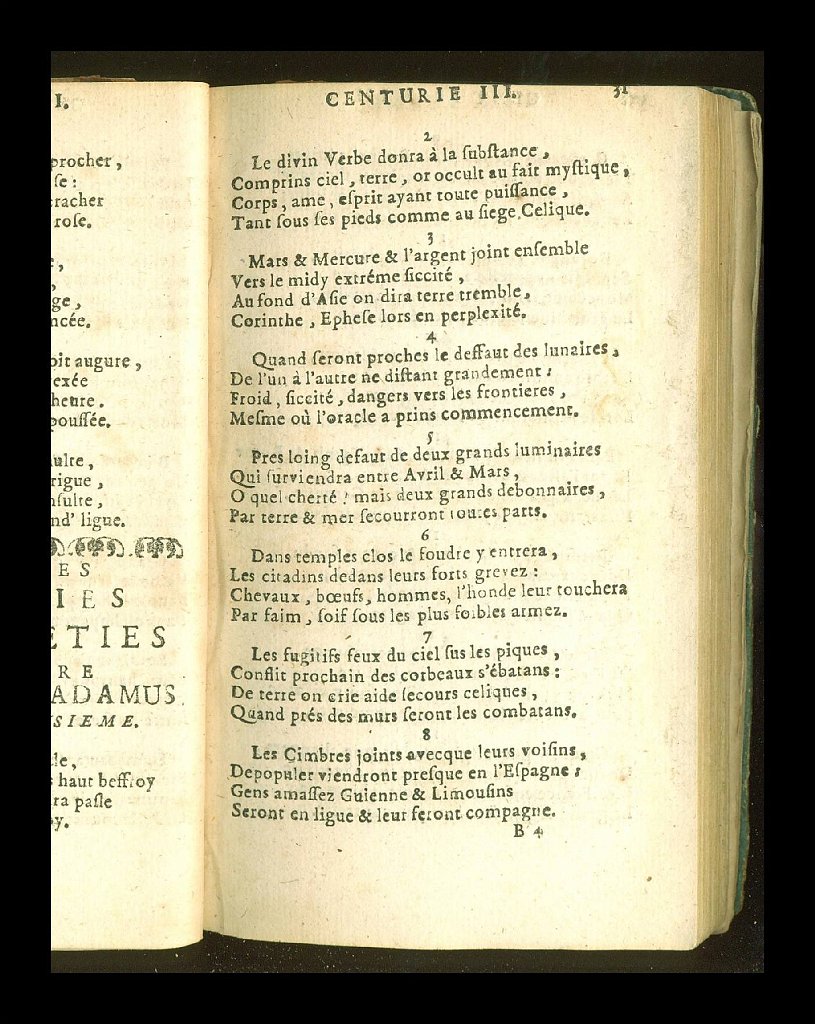 I.
procher,
se:
cracher
rose.
e,
,
ge,
ncée.
oit augure,
exée
heure.
poussée.
ulte,
rigue,
nsulte,
nd' ligue.
ES
IES
ETIES
RE
ADAMUS
SIEME.
le,
s haut beffroy
ra pasle
oy.
CENTURIE III. 31
2
Le divin Verbe donra à la ſubſtance,
Comprins ciel, terre, or occult au fait myſtique,
Corps, ame, eſprit ayant toute puiſſance,
Tant ſous ſes pieds comme au ſiege Celique.
3
Mars & Mercure & l'argent joint enſemble
Vers le midy extréme ſiccité,
Au fond d'Aſie on dira terre tremble,
Corinthe, Epheſe lors en perplexité.
4
Quand ſeront proches le deffaut des lunaires,
De l'un à l'autre ne diſtant grandement:
Froid, ſiccité, dangers vers les frontieres,
Meſme où l'oracle a prins commencement.
5
Pres loing defaut de deux grands luminaires
Qui ſurviendra entre Avril & Mars,
O quel cherté! mais deux grands debonnaires,
Par terre & mer ſecourront toutes parts.
6
Dans temples clos le foudre y entrera,
Les citadins dedans leurs forts grevez:
Chevaux, bœufs, hommes, l'honde leur touchera
Par faim, ſoif ſous les plus foibles armez.
7
Les fugitifs feux du ciel ſus les piques,
Conflit prochain des corbeaux s'ébatans:
De terre on crie aide ſecours celiques,
Quand prés des murs ſeront les combatans.
8
Les Cimbres joints avecque leurs voiſins,
Depopuler viendront preſque en l'Eſpagne:
Gens amaſſez Guienne & Limouſins
Seront en ligue & leur feront compagne.
B 4